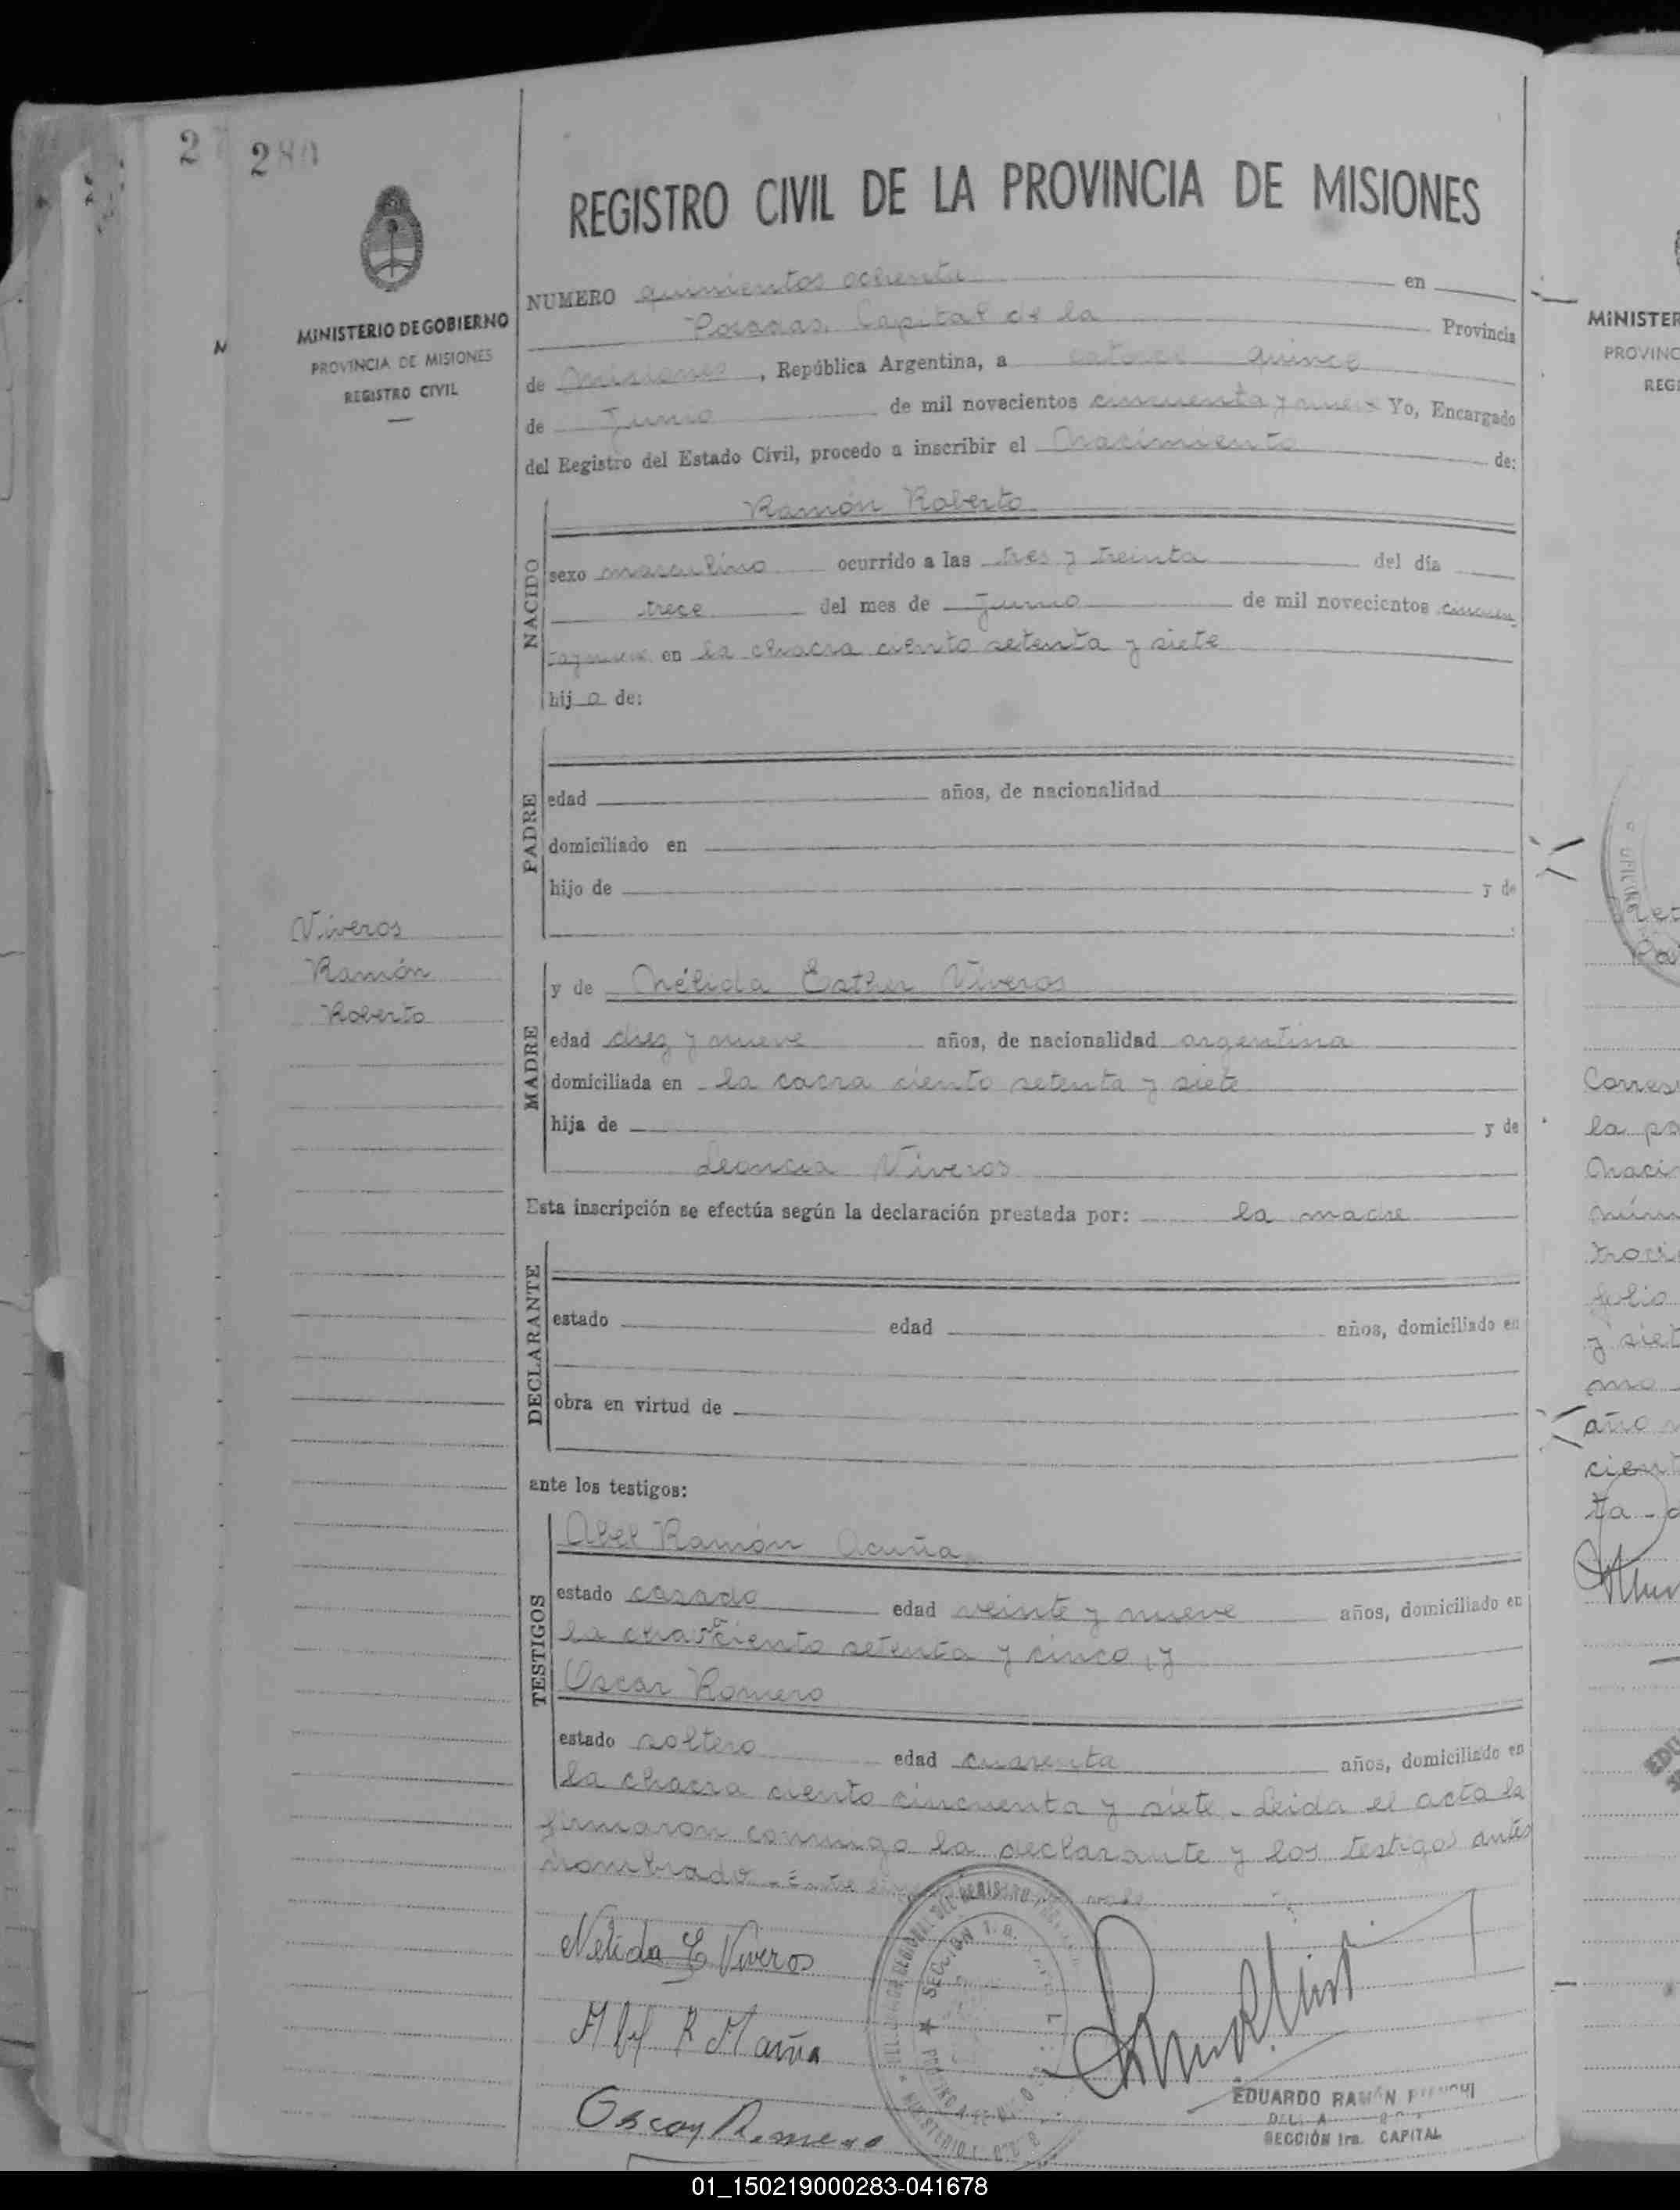 280
MINISTERIO DE GOBIERNO
PROVINCIA DE MISIONES
REGISTRO CIVIL
Viveros
Ramón
Roberto
REGISTRO CIVIL DE LA PROVINCIA DE MISIONES
NUMERO quinientos ochenta en
Posadas, Capital de la Provincia
de Misiones, República Argentina, a catorce quince
de Junio de mil novecientos cincuenta y nueve Yo, Encargado
del Registro del Estado Civil, procedo a inscribir el Nacimiento de:
NACIDO
Ramón Roberto
sexo masculino ocurrido a las tres y treinta del día
trece del mes de Junio de mil novecientos cincuen
ta y nueve en la chacra ciento setenta y siete
hij o de:
PADRE
edad años, de nacionalidad
domiciliado en
hijo de y de
MADRE
y de Nélida Esther Viveros
edad diez y nueve años, de nacionalidad argentina
domiciliada en la cacra ciento setenta y siete
hija de y de
Leoncia Viveros
Esta inscripción se efectúa según la declaración prestada por: la madre
DECLARANTE
estado edad años, domiciliado en
obra en virtud de
ante los testigos:
TESTIGOS
Abel Ramón Acuña
estado casado edad veinte y nueve años, domiciliado en
la ciento setenta y cinco, y
Oscar Romero
estado soltero edad cuarenta años, domiciliado en
la chacra ciento cincuenta y siete. Leida el acta la
firmaron conmigo la declarante y los testigos antes
nombrado - Entre vale
Nelida E Viveros
Oscar Romero
SECCION 1a.
EDUARDO RAMÓN
SECCIÓN 1ra. CAPITAL
MINISTER
PROVINC
REGI
Corres
la pa
Naci
folio
y siet
año
cient
ta
01_150219000283-041678